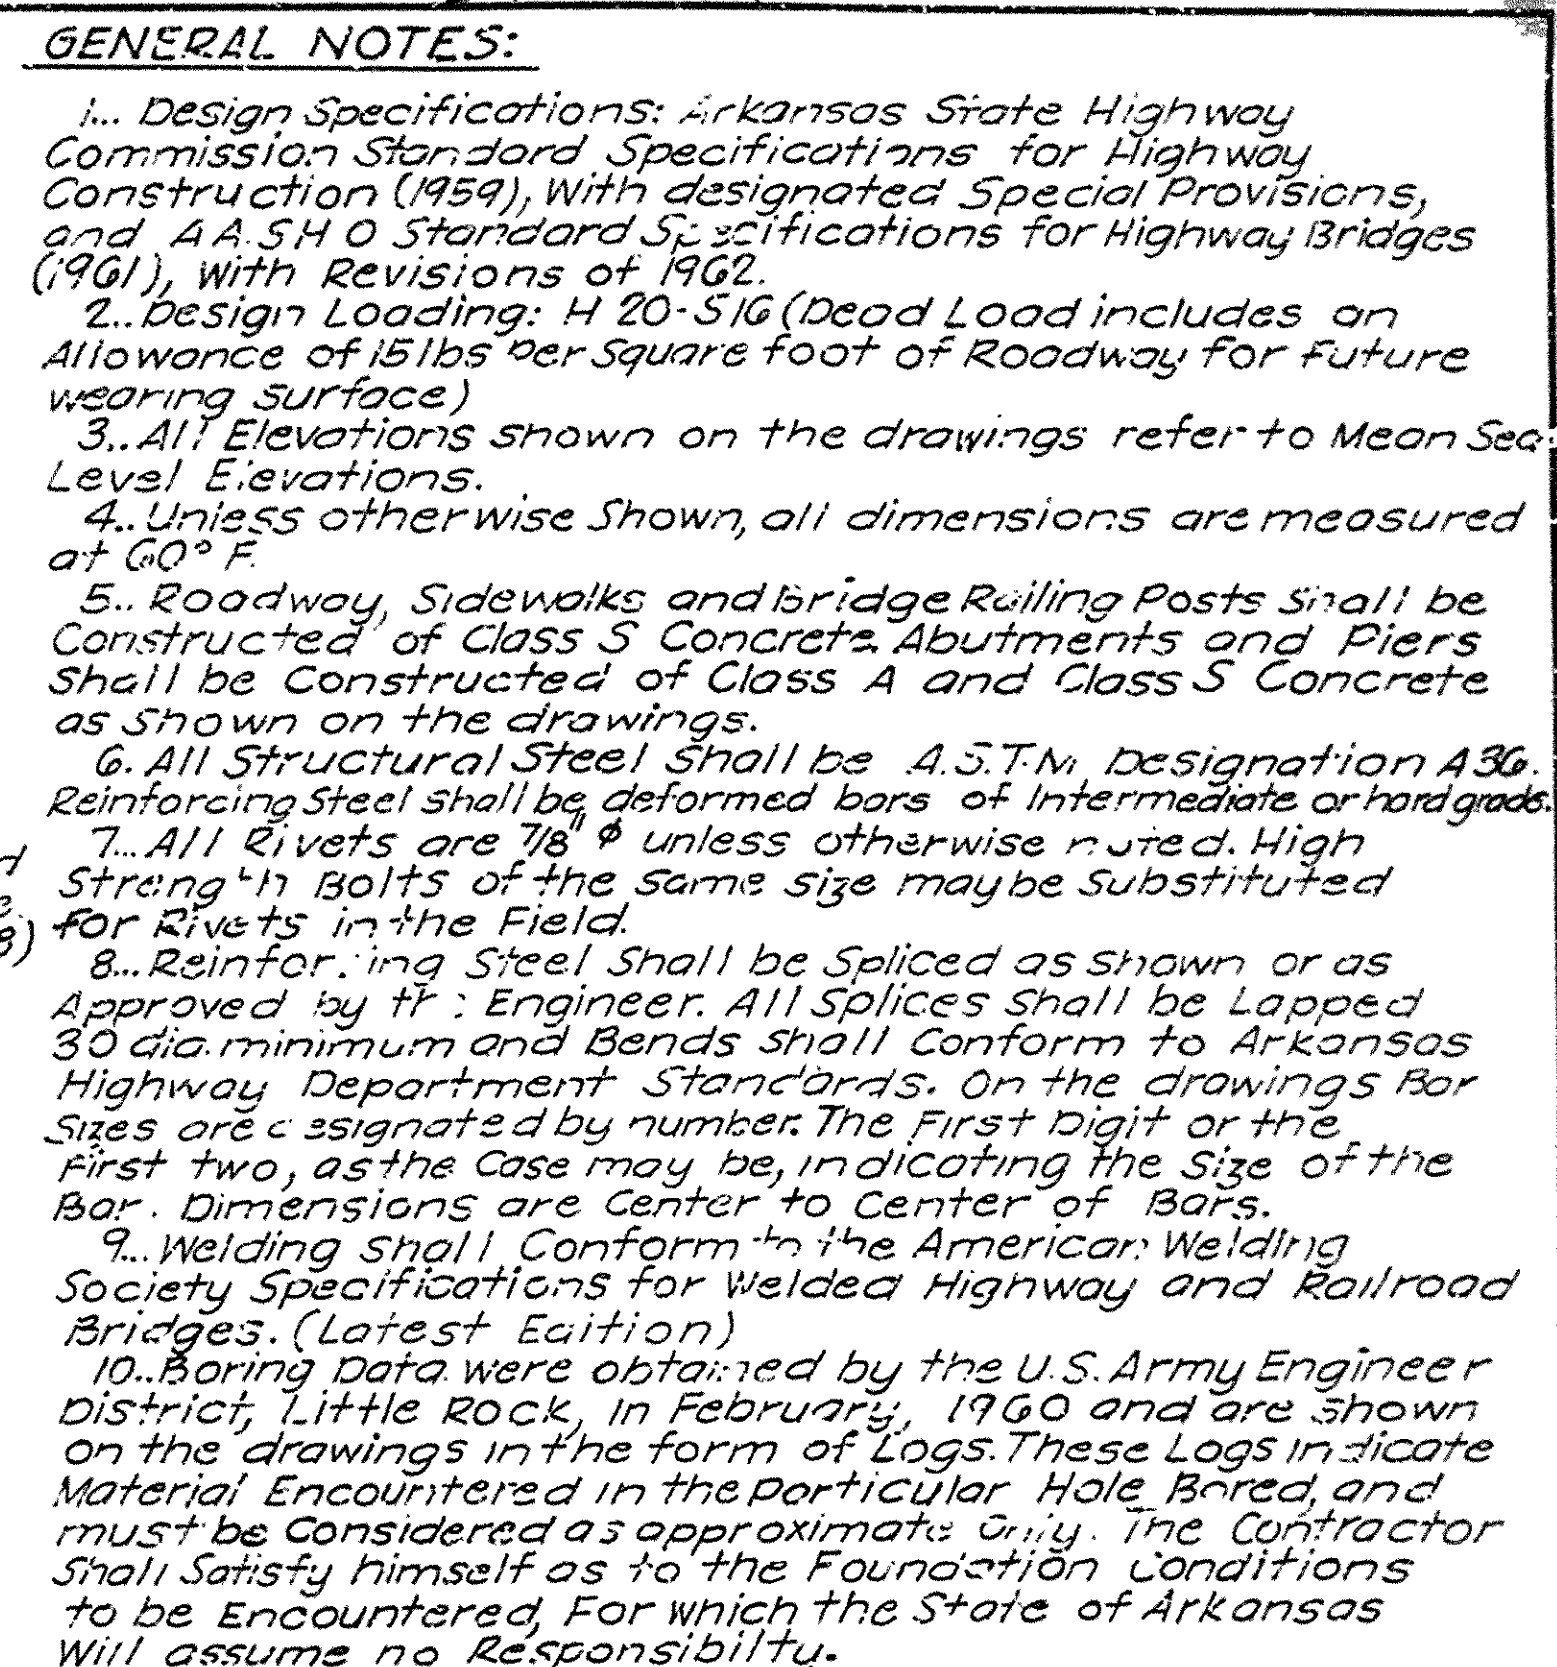 GENERAL NOTES:
1... Design Specifications: Arkansas State Highway
Commission Standard Specifications for Highway
Construction (1959), With designated Special Provisions,
and A A.S H O Standard Specifications for Highway Bridges
(1961), With Revisions of 1962.
2.. Design Loading: H 20-S16 (Dead Load includes an
Allowance of 15 lbs per Square foot of Roadway for future
wearing surface)
3.. All Elevations shown on the drawings refer to Mean Sea
Level Elevations.
4.. Unless otherwise Shown, all dimensions are measured
at 60° F.
5.. Roadway, Sidewalks and Bridge Railing Posts Shall be
Constructed of Class S Concrete. Abutments and Piers
Shall be Constructed of Class A and Class S Concrete
as Shown on the drawings.
6. All Structural Steel Shall be A.S.T.M. Designation A36.
Reinforcing Steel shall be, deformed bars of Intermediate or hard grade.
7... All Rivets are 7/8" ϕ unless otherwise noted. High
Strength Bolts of the same size may be Substituted
for Rivets in the Field.
8... Reinforcing Steel Shall be Spliced as shown or as
Approved by the Engineer. All Splices Shall be Lapped
30 dia. minimum and Bends shall Conform to Arkansas
Highway Department Standards. On the drawings Bar
Sizes are designated by number. The First Digit or the
First two, as the Case may be, indicating the Size of the
Bar. Dimensions are Center to Center of Bars.
9... Welding shall Conform to the American Welding
Society Specifications for Welded Highway and Railroad
Bridges. (Latest Edition)
10.. Boring Data were obtained by the U.S. Army Engineer
District, Little Rock, in February, 1960 and are shown
on the drawings in the form of Logs. These Logs indicate
Material Encountered in the particular Hole Bored, and
must be Considered as approximate Only. The Contractor
Shall Satisfy himself as to the Foundation Conditions
to be Encountered, For which the State of Arkansas
Will assume no Responsibilty.